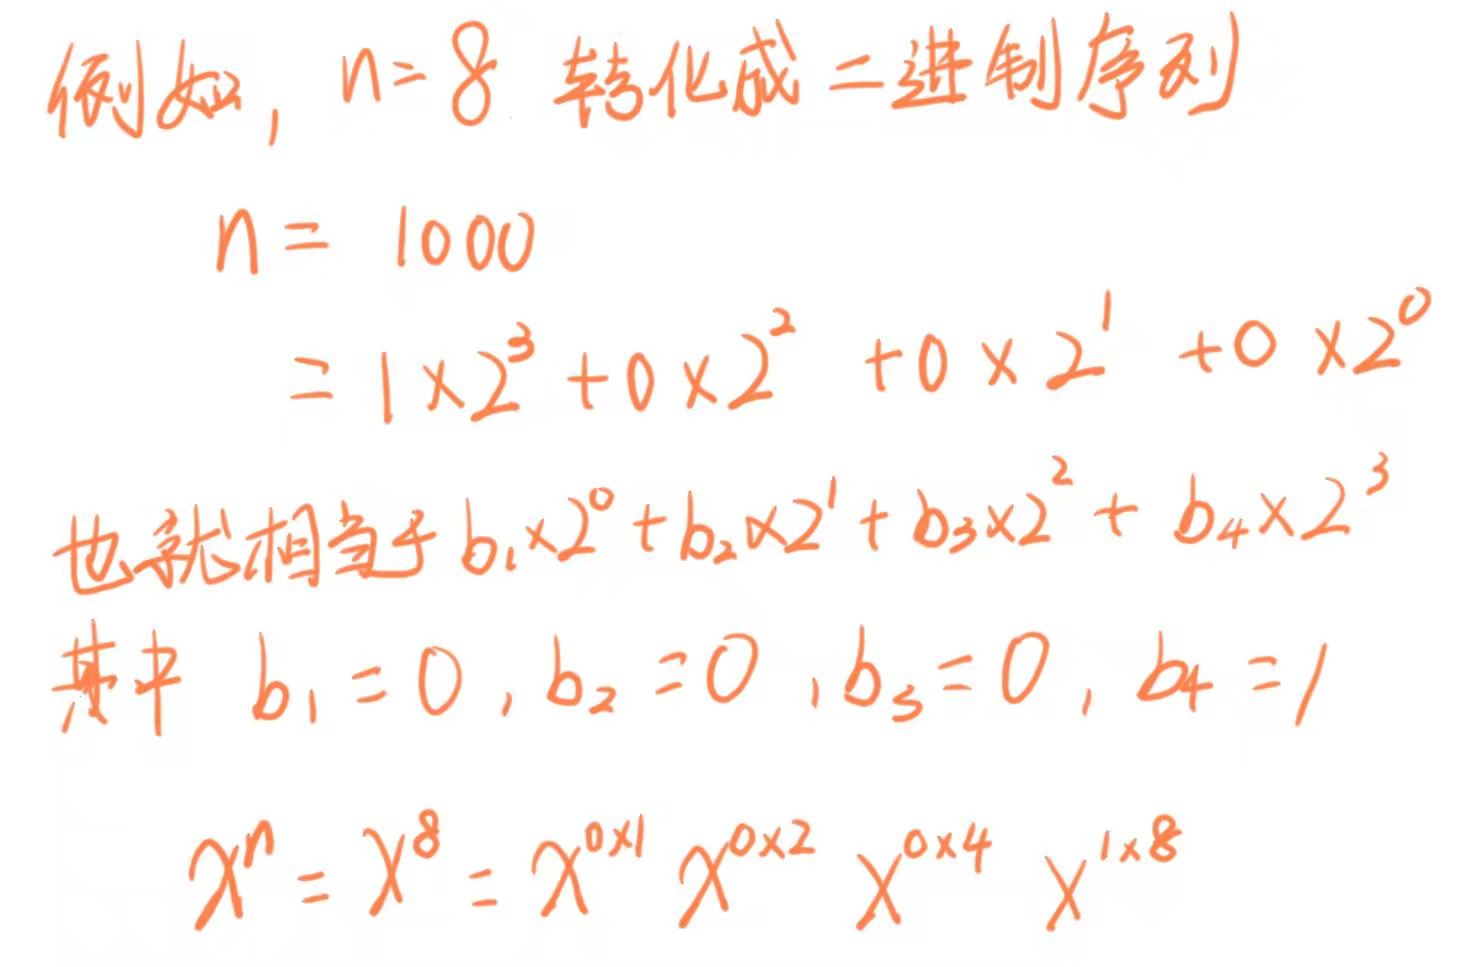 例如, n=8 转化成二进制序列
n = 1000
= 1×2³+0×2²+0×2¹+0×2⁰
也就相当于 b₁×2⁰+b₂×2¹+b₃×2²+b₄×2³
其中 b₁=0, b₂=0, b₃=0, b₄=1
xⁿ = x⁸ = x^{0×1} x^{0×2} x^{0×4} x^{1×8}